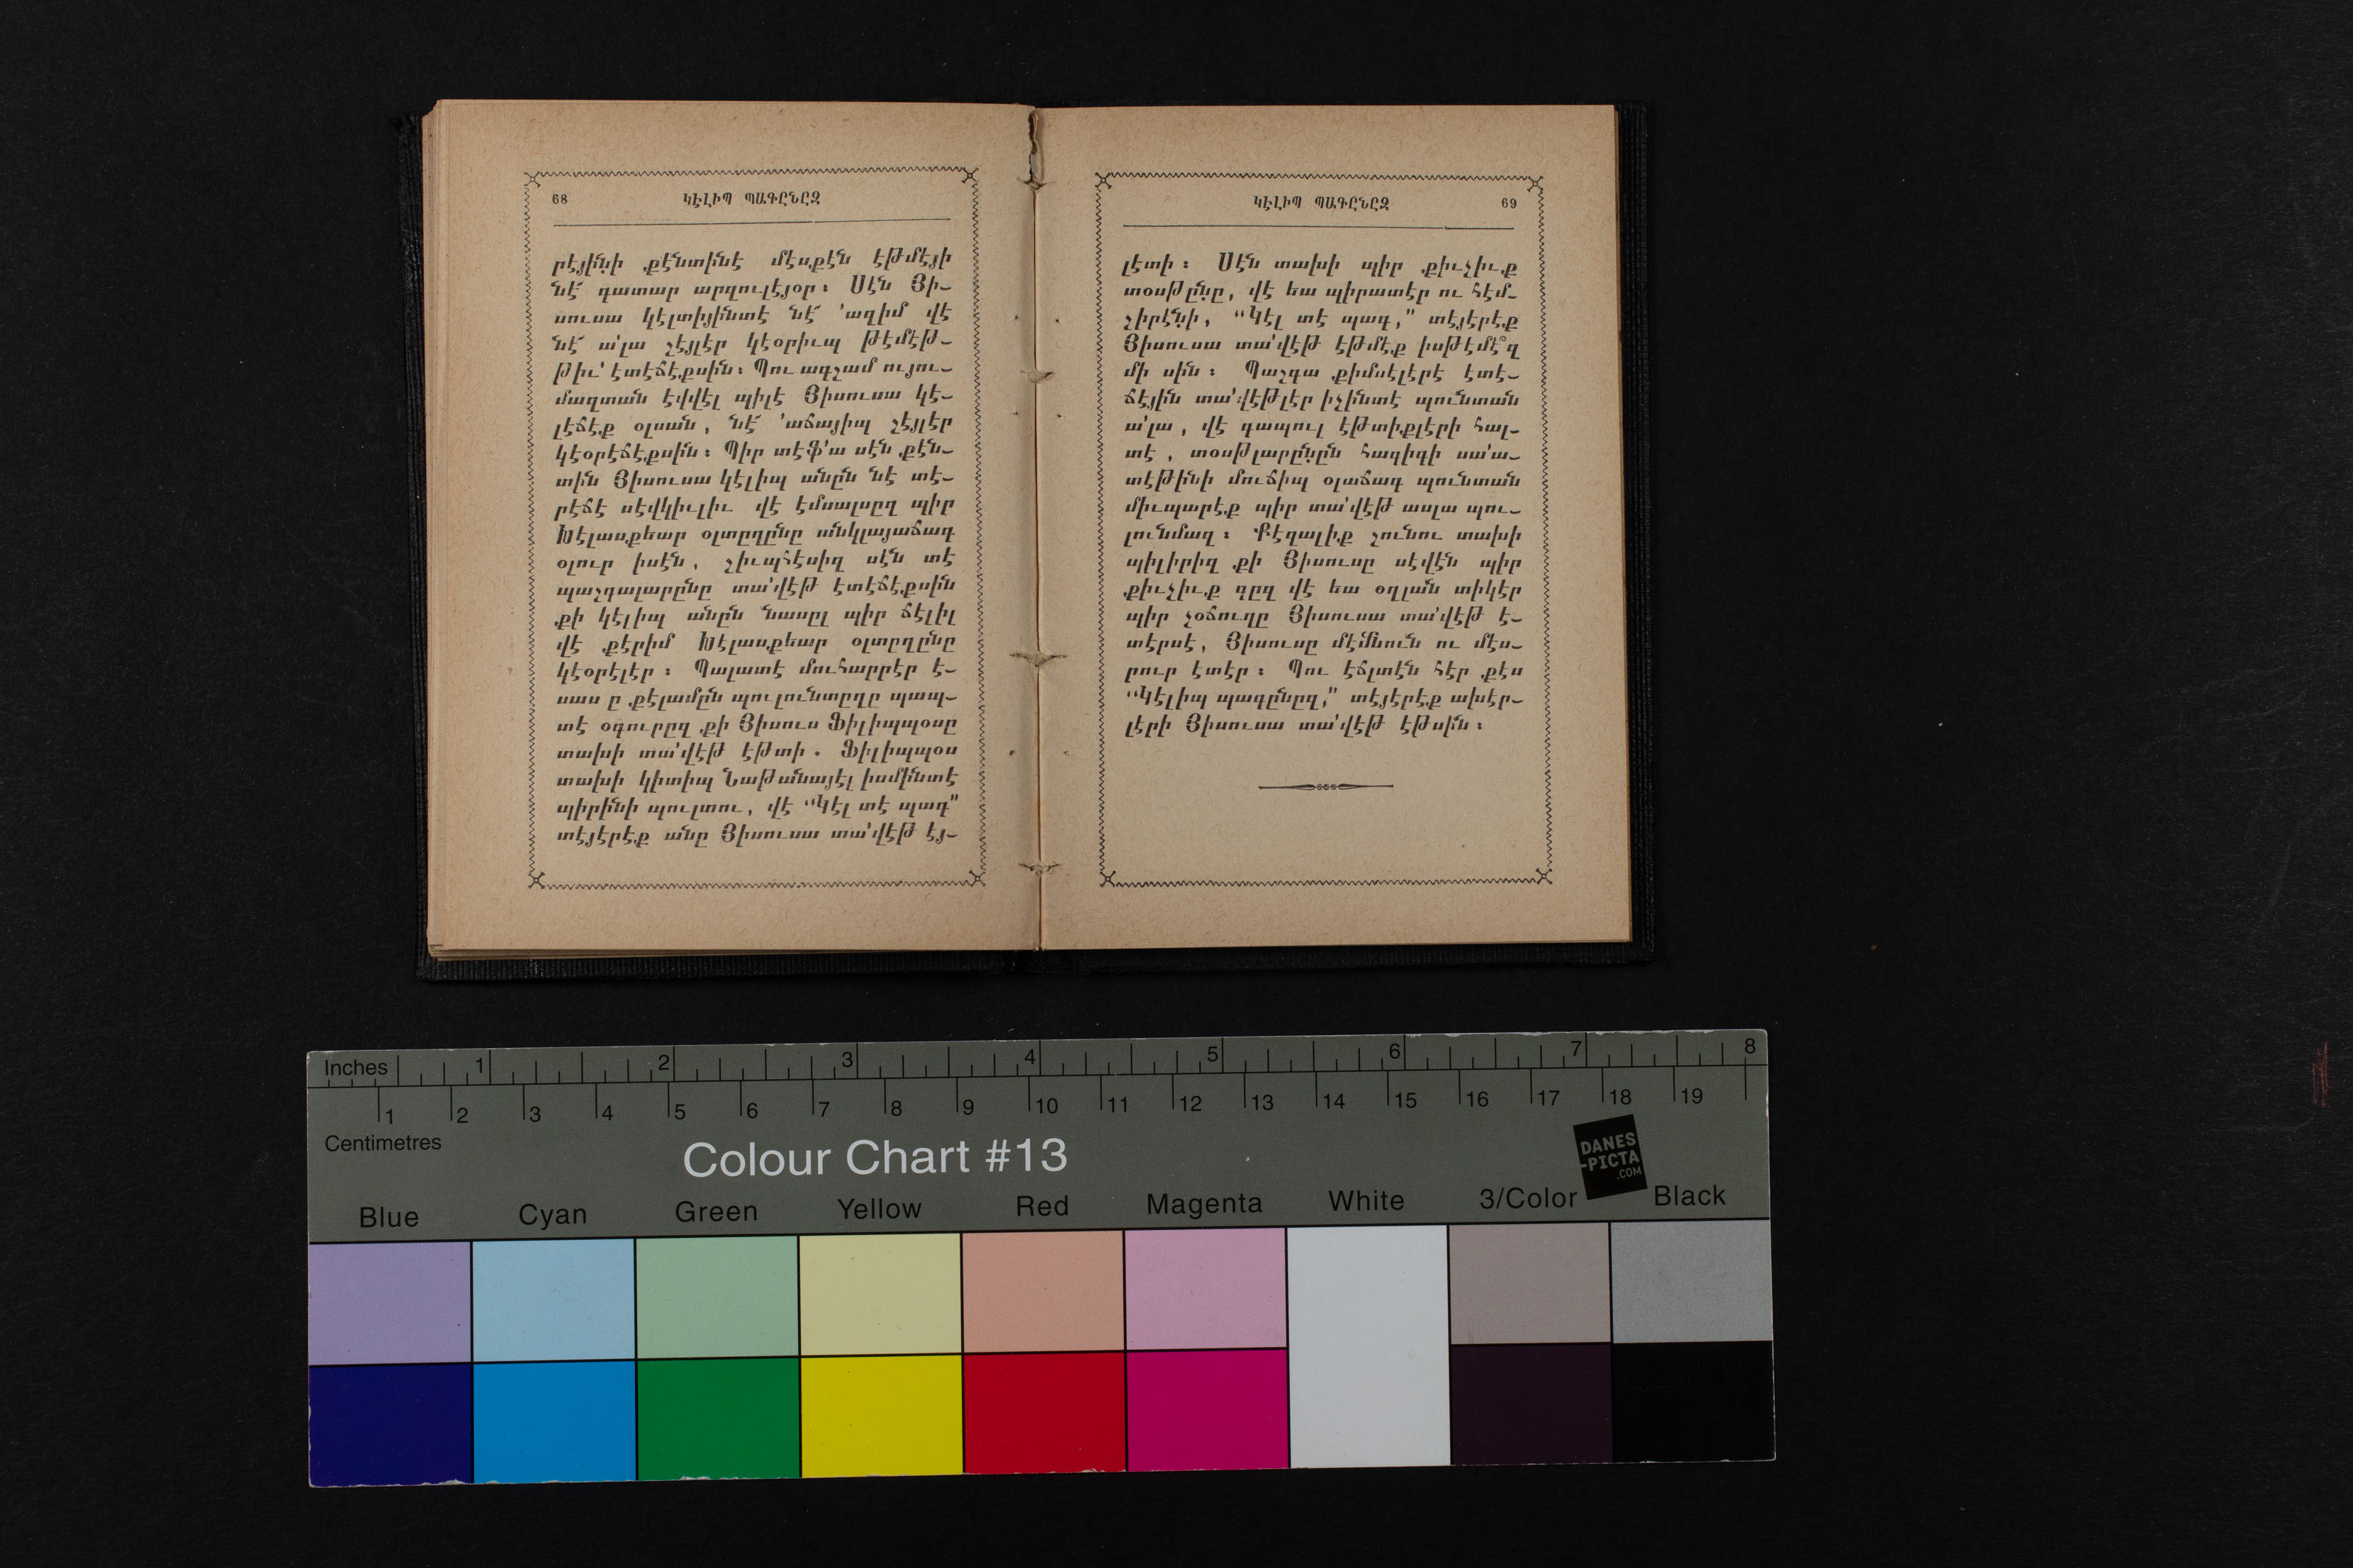 68 ԿԷԼԻՊ ՊԱԳԸՆԸԶ
րէյինի քէնտինէ մէսքէն էթմէյի
նէ՜ գատար արզուլէյօր։ Սէն Յի-
սուսա կէլտիյինտէ նէ՜ ՚ազիմ վէ
նէ՜ ա՚լա շէյլէր կէօրիւպ թէմէթ-
թիւ՚ էտէճէքսին։ Պու ագշամ ույու-
մազտան էվվէլ պիլէ Յիսուսա կէ-
լէճէք օլսան, նէ՜ ՚աճայիպ շէյլէր
կէօրէճէքսին։ Պիր տէֆ՚ա սէն քէն-
տին Յիսուսա կէլիպ անըն նէ տէ-
րէճէ սէվկիւլիւ վէ էմսալսըզ պիր
Խէլասքեար օլտըղընը անկլայաճագ
օլուր իսէն, շիւպհէսիզ սէն տէ
պաշգալարընը տա՚վէթ էտէճէքսին
քի կէլիպ անըն նասըլ պիր ճէլիլ
վէ քէրիմ Խէլասքեար օլտըղընը
կէօրէլէր։ Պալատէ մուհարրէր է-
սաս ը քէլամըն պուլունտըղը պապ-
տէ օգուրըզ քի Յիսուս Ֆիլիպպօսը
տախի տա՚վէթ էթտի. Ֆիլիպպօս
տախի կիտիպ Նաթանայէլ իսմինտէ
պիրինի պուլտու, վէ “Կէլ տէ պագ”
տէյէրէք անը Յիսուսա տա՚վէթ էյ-
ԿԷԼԻՊ ՊԱԳԸՆԸԶ 69
լէտի։ Սէն տախի պիր քիւչիւք
տօսթընը, վէ եա պիրատէր ու հէմ-
շիրէնի, “Կէլ տէ պագ,” տէյէրէք
Յիսուսա տա՚վէթ էթմէք իսթէմէ՞զ
մի սին։ Պաշգա քիմսէլէրէ էտէ-
ճէյին տա՚վէթլէր իչինտէ պունտան
ա՚լա, վէ գապուլ էթտիքլէրի հալ-
տէ, տօսթլարընըն հագիգի սա՚ա-
տէթինի մուճիպ օլաճագ պունտան
միւպարէք պիր տա՚վէթ ասլա պու-
լունմազ։ Քէզալիք շունու տախի
պիլիրիզ քի Յիսուսը սէվէն պիր
քիւչիւք գըզ վէ եա օղլան տիկէր
պիր չօճուղը Յիսուսա տա՚վէթ է-
տէրսէ, Յիսուսը մէմնուն ու մէս-
րուր էտէր։ Պու էճլտէն հէր քէս
“Կէլիպ պագընըզ,” տէյէրէք ախէր-
լէրի Յիսուսա տա՚վէթ էթսին։
Inches 1 2 3 4 5 6 7 8
1 2 3 4 5 6 7 8 9 10 11 12 13 14 15 16 17 18 19
Centimetres
Colour Chart #13
DANES
-PICTA
.COM
Blue Cyan Green Yellow Red Magenta White 3/Color Black